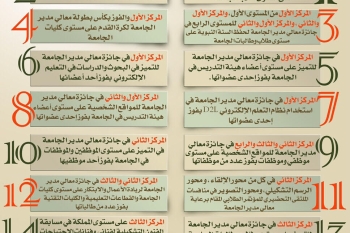 المركز الأول من المستوى الأول، والمركز الأول
والثاني، والمركز الأول للمستوى الرابع في
جائزة معالي مدير الجامعة لحفظ السنة النبوية على
مستوى طلاب وطالبات الجامعة
3
المركز الأول والفوز بكأس بطولة معالي مدير
الجامعة لكرة القدم على مستوى كليات
الجامعة
4
المركز الأول في جائزة معالي مدير الجامعة
للتميز على مستوى أعضاء هيئة التدريس في
الجامعة بفوز إحدى عضواتها
5
المركز الأول في جائزة معالي مدير الجامعة
للتميز في البحوث والدراسات في التعليم
الإلكتروني بفوز أحد أعضائها
6
المركز الأول والثاني في جائزة
استخدام نظام التعلم الإلكتروني D2L بفوز
إحدى عضواتها
7
المركز الأول والثاني في جائزة معالي مدير
الجامعة للمواقع الشخصية على مستوى أعضاء
هيئة التدريس في الجامعة بفوز إحدى عضواتها
8
المركز الثاني والثالث والرابع في جائزة معالي
مدير الجامعة للمواقع الشخصية على مستوى
موظفي وموظفات بفوز عدد من موظفاتها
9
المركز الثاني في جائزة معالي مدير الجامعة
في التميز على مستوى الموظفين والموظفات
في الجامعة بفوز أحد موظفيها
10
المركز الثاني في كل من محور الإلقاء، ومحور
الرسم التشكيلي، ومحور التصوير في منافسات
الملتقى التحضيري للمؤتمر الطلابي المقام برعاية
معالي مدير الجامعة
11
المركز الثاني والثالث في جائزة معالي مدير
الجامعة لريادة الأعمال والابتكار على مستوى كليات
الجامعة والقطاعات التعليمية والكليات التقنية
بفوز عدد من طالباتها
12
المركز الثالث في جائزة معالي مدير الجامعة
13
المركز الثالث على مستوى المملكة في مسابقة
14